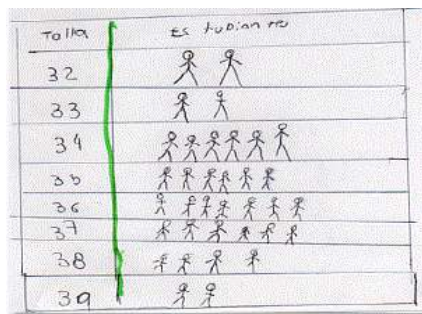 Talla Estudiantes
32
33
34
35
36
37
38
39